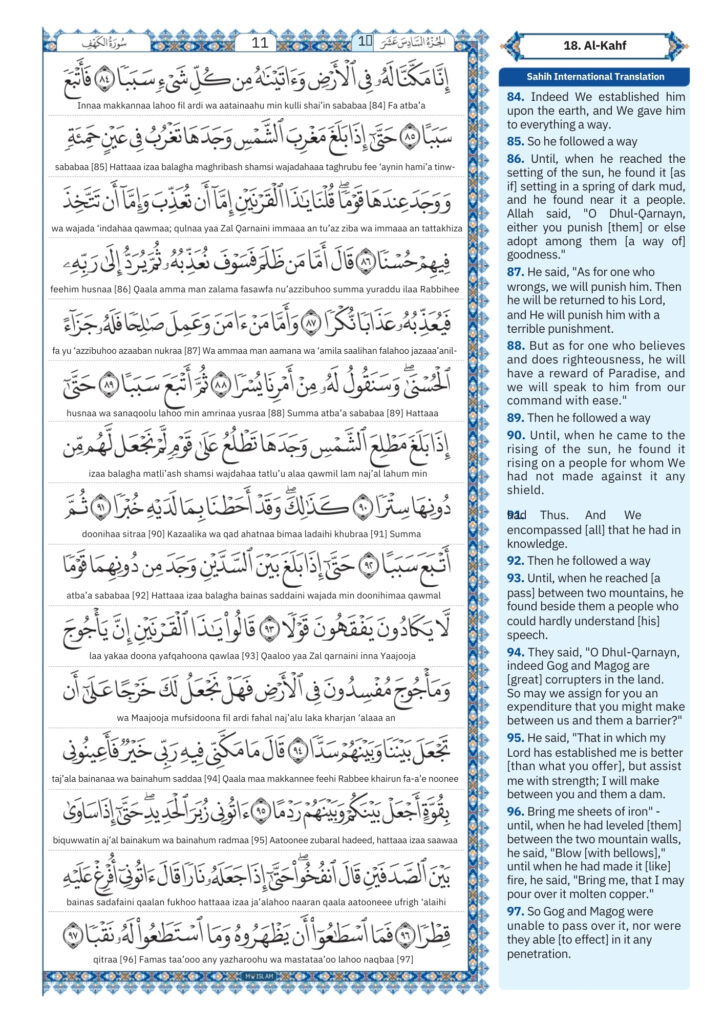 سُورَةُ الْكَهْفِ
11
1
الجُزْءُ السَّادِسَ عَشَرَ
إِنَّا مَكَّنَّا لَهُۥ فِى ٱلْأَرْضِ وَءَاتَيْنَٰهُ مِن كُلِّ شَىْءٍ سَبَبًا ٨٤ فَأَتْبَعَ
Innaa makkannaa lahoo fil ardi wa aatainaahu min kulli shai'in sababaa [84] Fa atba'a
سَبَبًا ٨٥ حَتَّىٰٓ إِذَا بَلَغَ مَغْرِبَ ٱلشَّمْسِ وَجَدَهَا تَغْرُبُ فِى عَيْنٍ حَمِئَةٍ
sababaa [85] Hattaaa izaa balagha maghribash shamsi wajadahaaa taghrubu fee 'aynin hami'a tinw-
وَوَجَدَ عِندَهَا قَوْمًا ۗ قُلْنَا يَٰذَا ٱلْقَرْنَيْنِ إِمَّآ أَن تُعَذِّبَ وَإِمَّآ أَن تَتَّخِذَ
wa wajada 'indahaa qawmaa; qulnaa yaa Zal Qarnaini immaaa an tu'az ziba wa immaaa an tattakhiza
فِيهِمْ حُسْنًا ٨٦ قَالَ أَمَّا مَن ظَلَمَ فَسَوْفَ نُعَذِّبُهُۥ ثُمَّ يُرَدُّ إِلَىٰ رَبِّهِۦ
feehim husnaa [86] Qaala amma man zalama fasawfa nu'azzibuhoo summa yuraddu ilaa Rabbihee
فَيُعَذِّبُهُۥ عَذَابًا نُّكْرًا ٨٧ وَأَمَّا مَنْ ءَامَنَ وَعَمِلَ صَٰلِحًا فَلَهُۥ جَزَآءً
fa yu 'azzibuhoo azaaban nukraa [87] Wa ammaa man aamana wa 'amila saalihan falahoo jazaaa'anil-
ٱلْحُسْنَىٰ ۖ وَسَنَقُولُ لَهُۥ مِنْ أَمْرِنَا يُسْرًا ٨٨ ثُمَّ أَتْبَعَ سَبَبًا ٨٩ حَتَّىٰٓ
husnaa wa sanaqoolu lahoo min amrinaa yusraa [88] Summa atba'a sababaa [89] Hattaaa
إِذَا بَلَغَ مَطْلِعَ ٱلشَّمْسِ وَجَدَهَا تَطْلُعُ عَلَىٰ قَوْمٍ لَّمْ نَجْعَل لَّهُم مِّن
izaa balagha matli'ash shamsi wajdahaa tatlu'u alaa qawmil lam naj'al lahum min
دُونِهَا سِتْرًا ٩٠ كَذَٰلِكَ ۖ وَقَدْ أَحَطْنَا بِمَا لَدَيْهِ خُبْرًا ٩١ ثُمَّ
doonihaa sitraa [90] Kazaalika wa qad ahatnaa bimaa ladaihi khubraa [91] Summa
أَتْبَعَ سَبَبًا ٩٢ حَتَّىٰٓ إِذَا بَلَغَ بَيْنَ ٱلسَّدَّيْنِ وَجَدَ مِن دُونِهِمَا قَوْمًا
atba'a sababaa [92] Hattaaa izaa balagha bainas saddaini wajada min doonihimaa qawmal
لَّا يَكَادُونَ يَفْقَهُونَ قَوْلًا ٩٣ قَالُوا۟ يَٰذَا ٱلْقَرْنَيْنِ إِنَّ يَأْجُوجَ
laa yakaa doona yafqahoona qawlaa [93] Qaaloo yaa Zal qarnaini inna Yaajooja
وَمَأْجُوجَ مُفْسِدُونَ فِى ٱلْأَرْضِ فَهَلْ نَجْعَلُ لَكَ خَرْجًا عَلَىٰٓ أَن
wa Maajooja mufsidoona fil ardi fahal naj'alu laka kharjan 'alaaa an
تَجْعَلَ بَيْنَنَا وَبَيْنَهُمْ سَدًّا ٩٤ قَالَ مَا مَكَّنِّى فِيهِ رَبِّى خَيْرٌ فَأَعِينُونِى
taj'ala bainanaa wa bainahum saddaa [94] Qaala maa makkannee feehi Rabbee khairun fa-a'e noonee
بِقُوَّةٍ أَجْعَلْ بَيْنَكُمْ وَبَيْنَهُمْ رَدْمًا ٩٥ ءَاتُونِى زُبَرَ ٱلْحَدِيدِ ۖ حَتَّىٰٓ إِذَا سَاوَىٰ
biquwwatin aj'al bainakum wa bainahum radmaa [95] Aatoonee zubaral hadeed, hattaaa izaa saawaa
بَيْنَ ٱلصَّدَفَيْنِ قَالَ ٱنفُخُوا۟ ۖ حَتَّىٰٓ إِذَا جَعَلَهُۥ نَارًا قَالَ ءَاتُونِىٓ أُفْرِغْ عَلَيْهِ
bainas sadafaini qaalan fukhoo hattaaa izaa ja'alahoo naaran qaala aatooneee ufrigh 'alaihi
قِطْرًا ٩٦ فَمَا ٱسْطَٰعُوٓا۟ أَن يَظْهَرُوهُ وَمَا ٱسْتَطَٰعُوا۟ لَهُۥ نَقْبًا ٩٧
qitraa [96] Famas taa'ooo any yazharoohu wa mastataa'oo lahoo naqbaa [97]
MW ISLAM
18. Al-Kahf
Sahih International Translation
84. Indeed We established him
upon the earth, and We gave him
to everything a way.
85. So he followed a way
86. Until, when he reached the
setting of the sun, he found it [as
if] setting in a spring of dark mud,
and he found near it a people.
Allah said, "O Dhul-Qarnayn,
either you punish [them] or else
adopt among them [a way of]
goodness."
87. He said, "As for one who
wrongs, we will punish him. Then
he will be returned to his Lord,
and He will punish him with a
terrible punishment.
88. But as for one who believes
and does righteousness, he will
have a reward of Paradise, and
we will speak to him from our
command with ease."
89. Then he followed a way
90. Until, when he came to the
rising of the sun, he found it
rising on a people for whom We
had not made against it any
shield.
91. Thus. And We
had encompassed [all] that he had in
knowledge.
92. Then he followed a way
93. Until, when he reached [a
pass] between two mountains, he
found beside them a people who
could hardly understand [his]
speech.
94. They said, "O Dhul-Qarnayn,
indeed Gog and Magog are
[great] corrupters in the land.
So may we assign for you an
expenditure that you might make
between us and them a barrier?"
95. He said, "That in which my
Lord has established me is better
[than what you offer], but assist
me with strength; I will make
between you and them a dam.
96. Bring me sheets of iron" -
until, when he had leveled [them]
between the two mountain walls,
he said, "Blow [with bellows],"
until when he had made it [like]
fire, he said, "Bring me, that I may
pour over it molten copper."
97. So Gog and Magog were
unable to pass over it, nor were
they able [to effect] in it any
penetration.